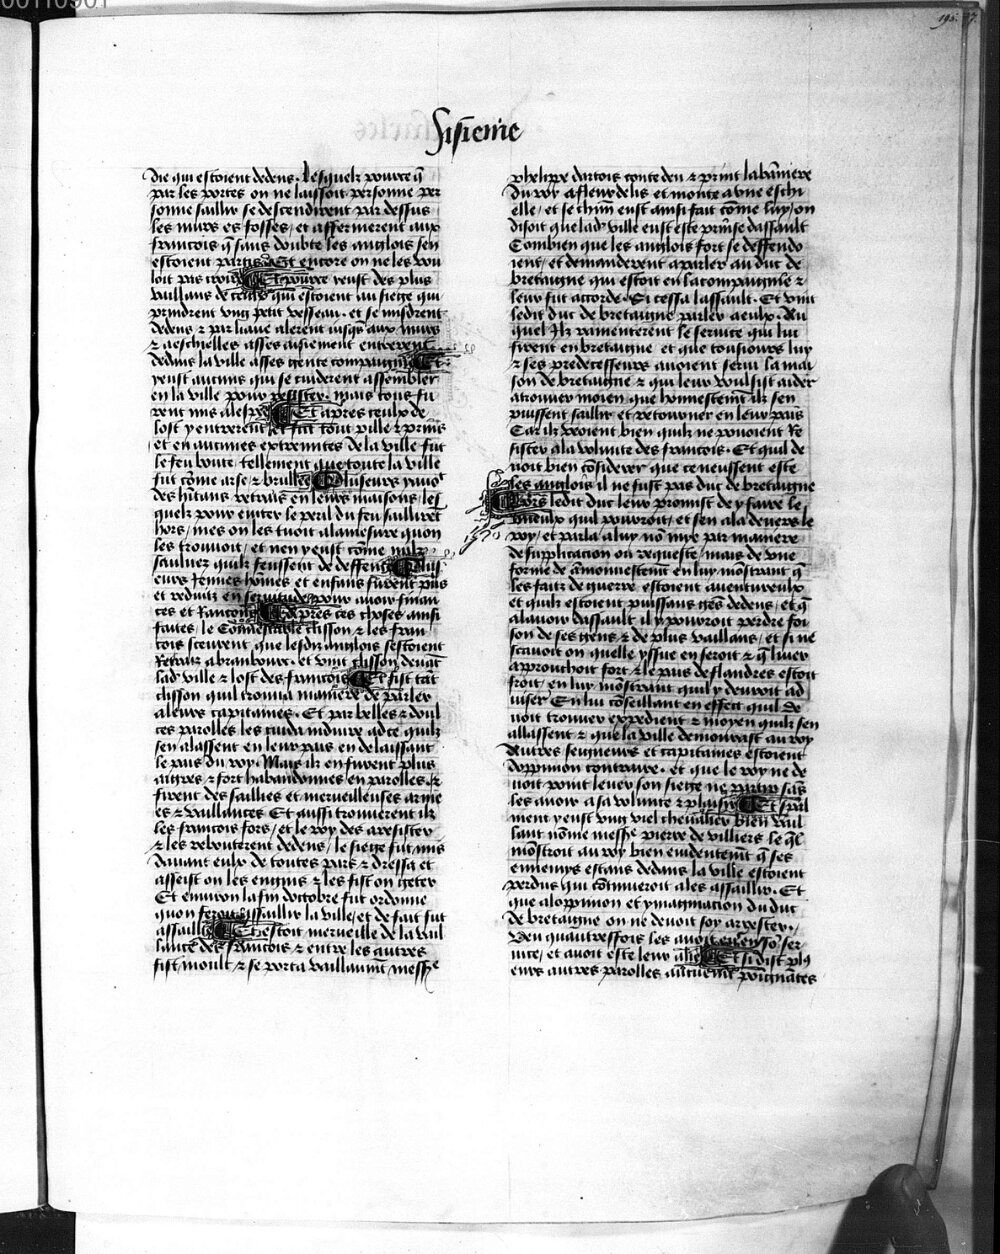 00110901
195. 7.
Sisieme
die qui estoient dedens. Lesquelz pource q̄
par les portes on ne laissoit personne per
sonne saillir se descendirent par dessus
les murs es fosses / et affermerent aux
francois q̄ sans doubte les anglois sen
estoient partis Et encore on ne les vou
loit pas croire Et pource yeust des plus
vaillans de ceulx qui estoient au siege qui
prindrent vng petit vesseau. et se misdrent
dedens ⁊ par leaue alerent iusq̄s aux murs
⁊ a eschielles asses aisiement entrerent
dedens la ville asses gente compaignie Et
yeust aucuns qui se cuiderent assembler
en la ville pour resister. mais tous fu
rent mis a lespee Et apres ceulx de
lost y entrerent et fut tout pille ⁊ prins
et en aucunes extremites de la ville fut
le feu boute / tellement que toute la ville
fut cōme arse ⁊ brullee Plusieurs y auoit
des hītans retrais en leurs maisons / les
quelz pour euiter le peril du feu sailliret
hors / mes on les tuoit alamesure quon
les trouuoit / et nen y eust cōme nulz
 quilz feussent de deffense Plusi
eurs femmes hōmes et enfans furent pris
et reduiz en seruitude pour auoir finan
ces et Rancons Apres ces choses ainsi
faites / le Connestable clisson ⁊ les fran
cois sceurent que lesdiz anglois sestoient
Retraiz abrambourc. et vint clisson deuāt
lad ville ⁊ lost des francois Et fist tāt
clisson quil trouua maniere de parler
aleurs capitaines. Et par belles ⁊ doul
ces parolles les cuida induire ad ce quilz
sen alassent en leur pais en delaissant
le pais du roy. Mais ilz en furent plus
aigres ⁊ fort habandonnes en parolles ⁊
firent des saillies et merueilleuses armē
es ⁊ vaillances Et aussi trouuerent ilz
les francois fors / et le roy des aresister
⁊ les rebouterent dedens / le siege fut mis
dauant eulx de toutes pars ⁊ dressa et
asseist on les engins ⁊ les fist on geter
Et enuiron la fin doctobre fut ordonne
quon feroit assaillir la ville / et de fait fut
assaillie Et estoit merueille de la vail
lance des francois ⁊ entre les autres
fist moult ⁊ se porta vaillaumt messe
phelippe dartois conte deu ⁊ print la baniere
du roy a fleurdelis et monte a vne eschi
elle / et se chūn eust ainsi fait cōme luy / on
disoit que lad ville eust este prinse dassault
Combien que les anglois fort se deffendo
ient / et demanderent a parler au duc de
bretaingne qui estoit en la compaignie ⁊
leur fut accorde. Si cessa lassault. Et vint
ledit duc de bretaigne parler a eulx. Au
quel Ilz ramenterent le seruice qui lui
firent en bretaigne et que tousiours luy
⁊ ses predecesseurs auoient serui la mai
son de bretaigne ⁊ qui leur voulsist aider
a trouuer moien que honnestemt ilz sen
puissent saillir et retourner en leur pais
Car ilz veoient bien quilz ne pouoient Re
sister ala volunte des francois. Et quil de
uoit bien cōsiderer que ce neussent este
les anglois il ne fust pas duc de bretaigne
Lors ledit duc leur promist de y faire le
mieulx quil pourroit / et sen ala deuers le
roy / et parla a luy nō mye par maniere
de supplicacion ou requeste / mais de vne
forme de āmonnestemt en luy mōstrant q̄
les faiz de guerre estoient auentureulx
et quilz estoient puissans gēs dedens / et q̄
alauoir dassault il y pourroit perdre foi
son de ses gens ⁊ de plus vaillans / et si ne
scauoit on quelle yssue en seroit ⁊ q̄ liuer
approuchoit fort ⁊ le pais de flandres estoit
froit / en luy mōstrant quil y deuroit ad
uiser En lui cōseillant en effect quil de
uoit trouuer expedient ⁊ moyen quilz sen
allassent ⁊ que la ville demourast au roy
Autres seigneurs et capitaines estoient
doppinion contraire. et que le roy ne de
uoit point leuer son siege ne partir sās
les auoir a sa volunte ⁊ plaisir Et spāl
ment y eust vng viel cheualier bien vail
lant nōme messe pierre de villiers le q̄l
mōstroit au roy bien euidentemt q̄ ses
ennemys estans dedans la ville estoient
perdus qui cōtinueroit a les assaillir. Et
que aloppinion et ymaginacion du duc
de bretaigne on ne deuoit soy arrester.
Veu quautreffois les auoit en son ser
uice / et auoit este leur alie Et si dist plꝰ
eurs autres parolles aucunemt poignātes